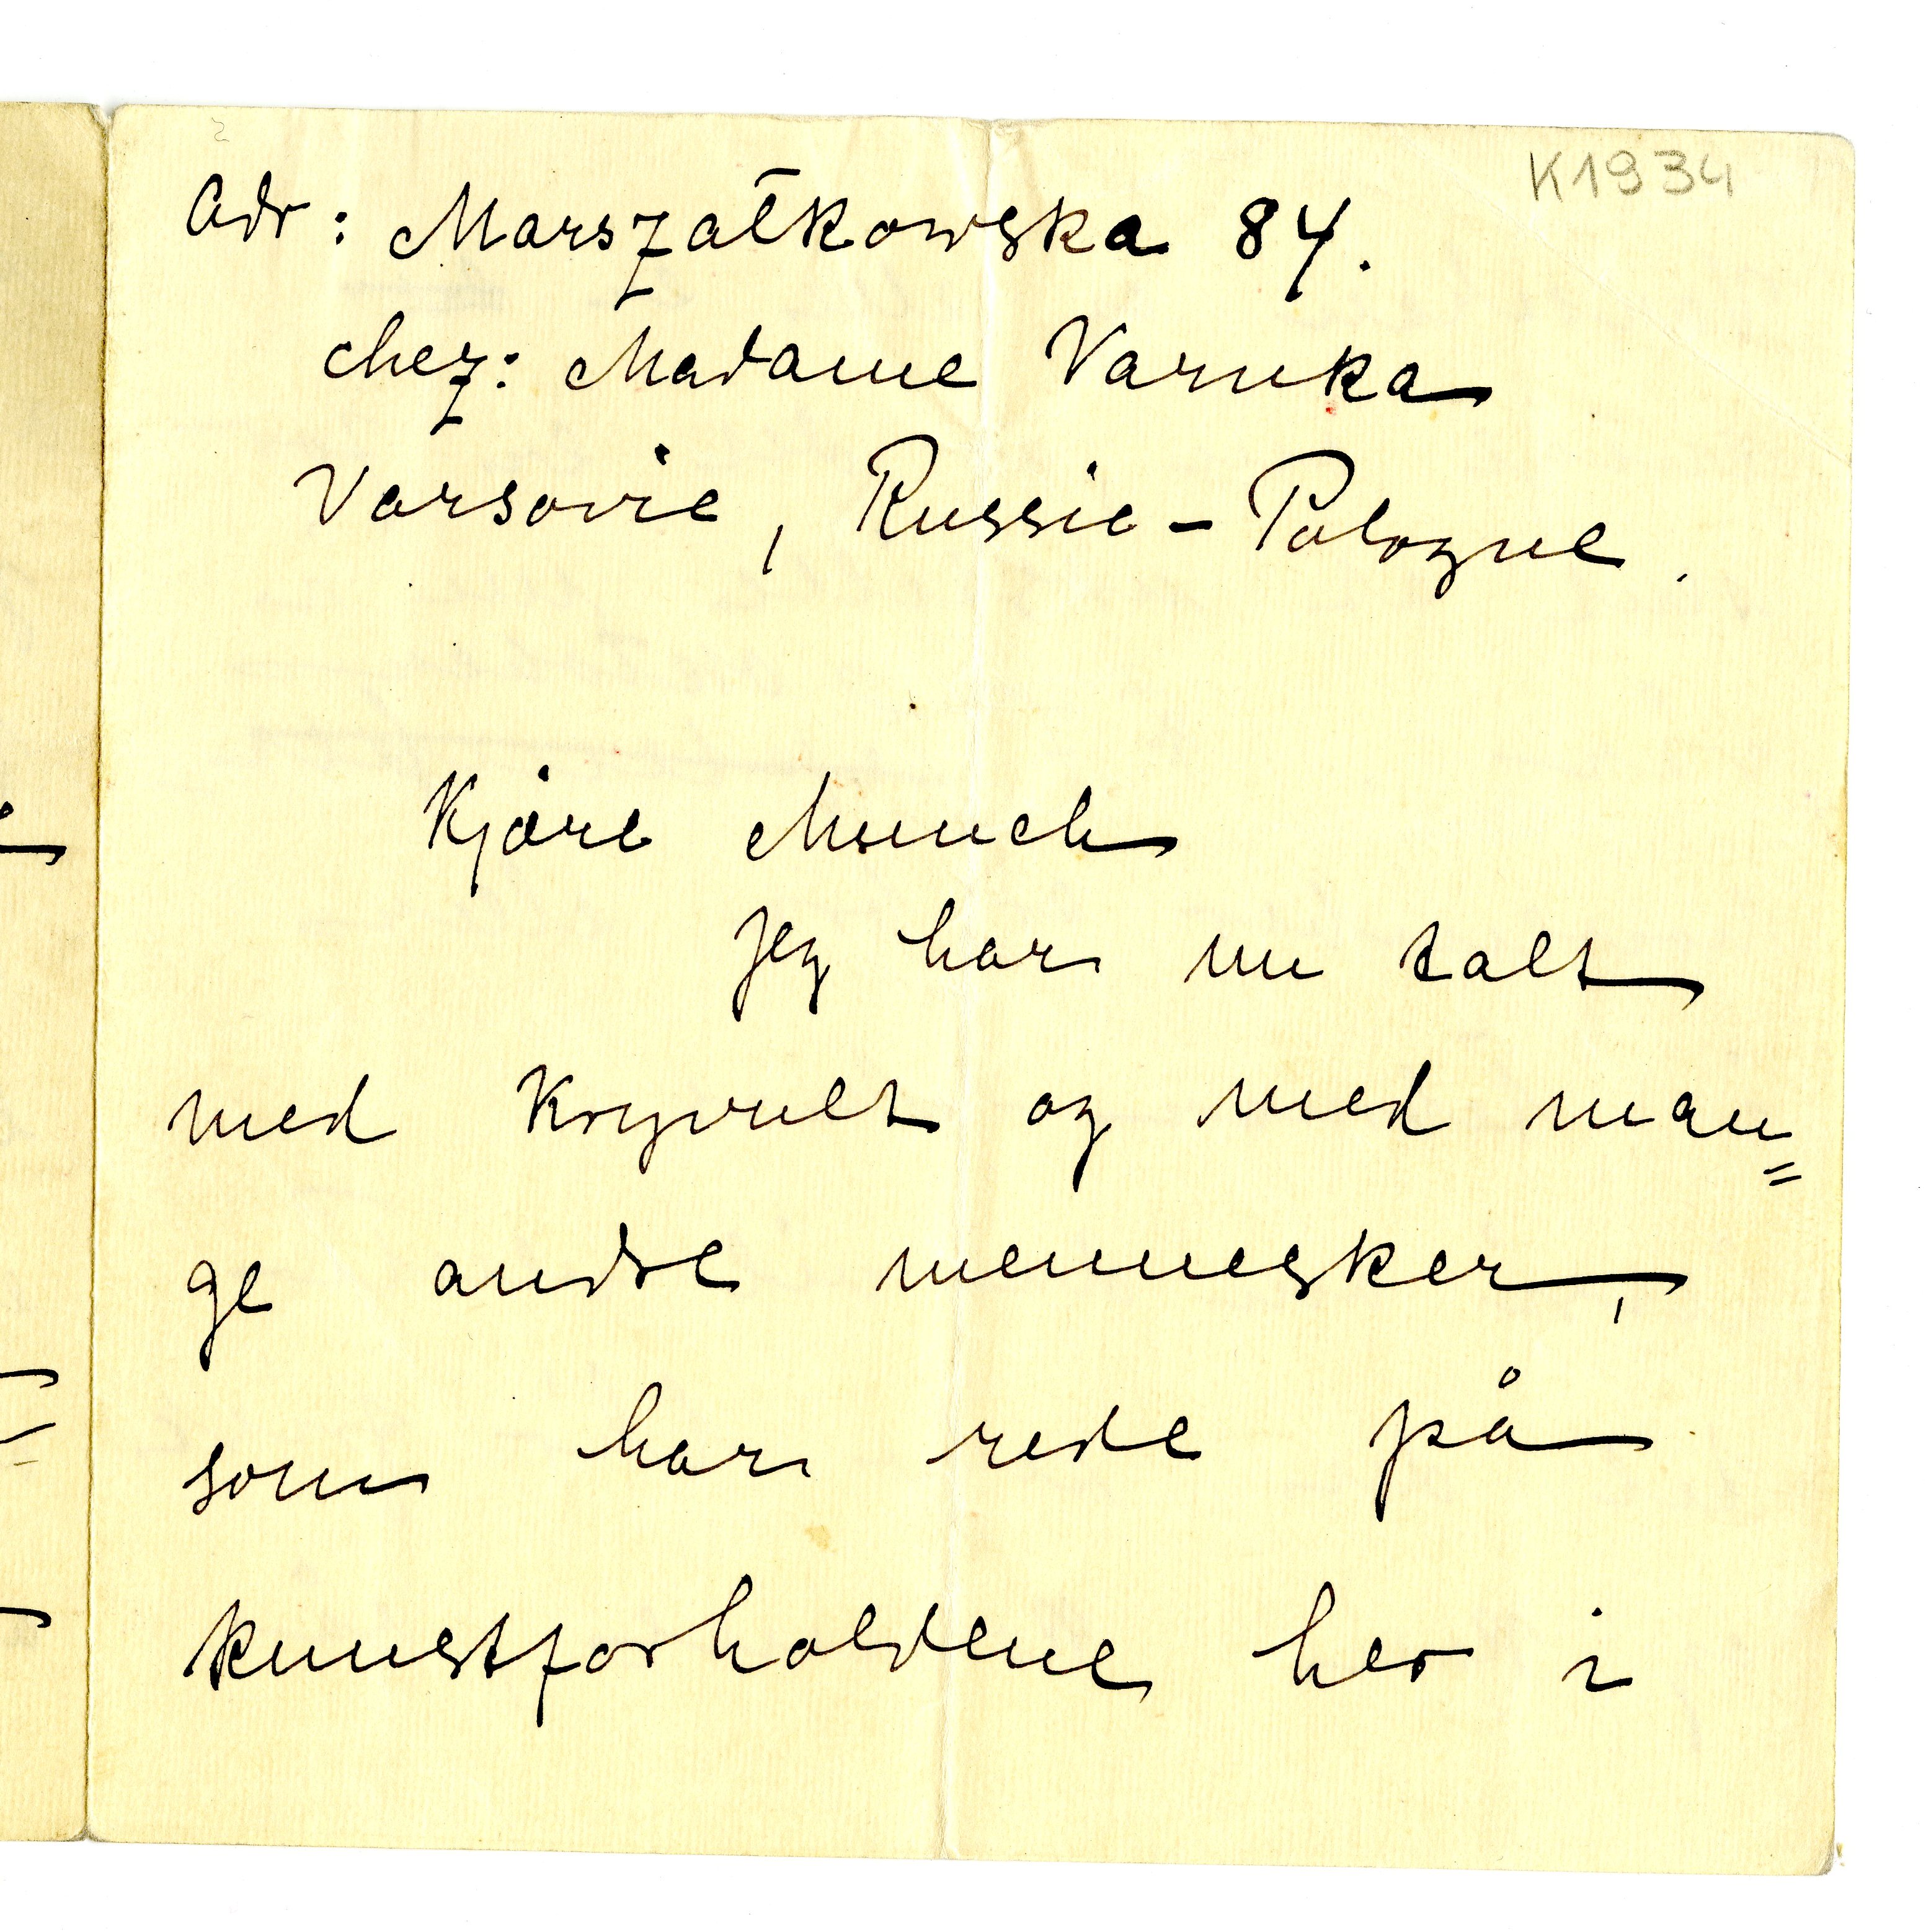 K1934
Adr: Marszałkowska 84.
chez: Madame Varnka
Varsovie, Russie-Pologne.
Kjäre Munch
Jeg har nu talt
med Kryvult og med man=
ge andre mennesker,
som har rede på
kunstforholdene her i